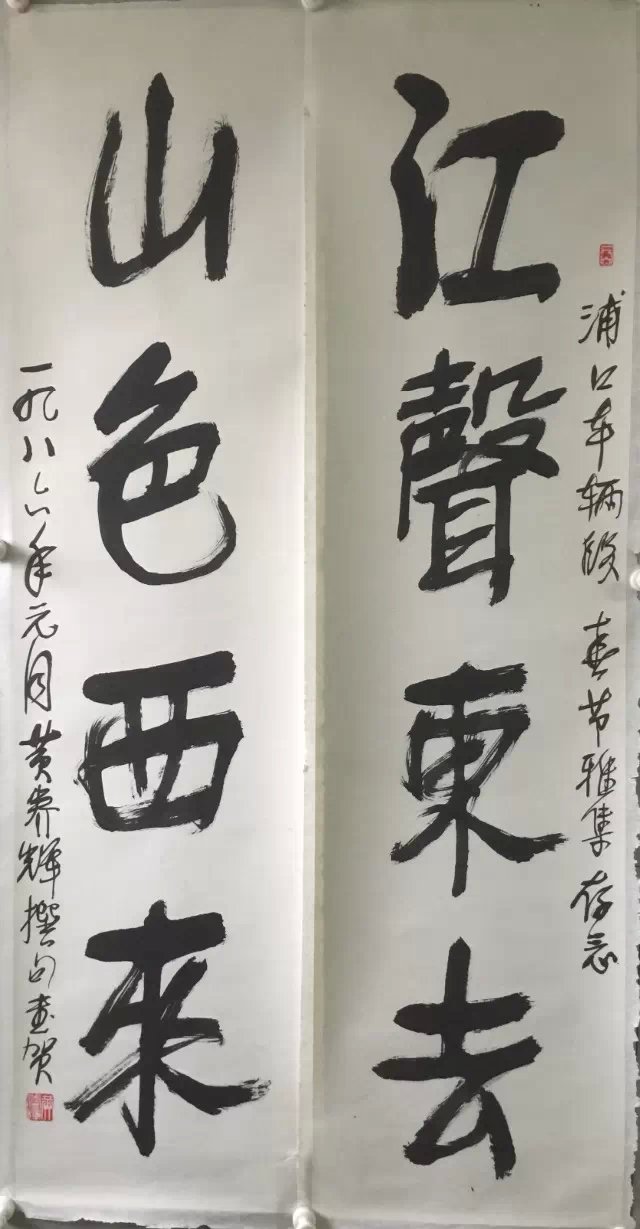 浦口车辆段 春节雅集 存念
江聲東去
山色西來
一九八六年元月黄养輝撰句書贺